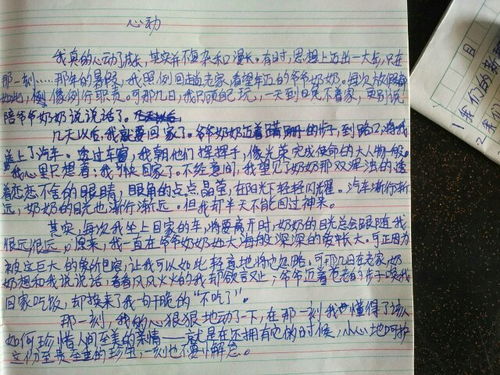 心动
我真的心动了成长,其实并不复杂和漫长。有时,思想上迈出一大步,只在
那一刻……那年的暑假,我照例回趟老家,看望年迈的爷爷奶奶。每次放假
地,像例行职责。可那几日,我只顾自己玩,一天到晚不着家,更别说
陪爷爷奶奶说说话了。
几天以后,我就要回家了。爷爷奶奶迈着蹒跚的步子,到路口,将我
送上了汽车。透过车窗,我朝他们挥挥手,像光荣完成使命的大人物一般。
我心里只想着:我可快回家了。不经意间,我望见了奶奶那双浑浊的透
着恋恋不舍的眼睛,眼角的点点晶莹,在阳光下轻轻闪耀。汽车渐行渐
远,奶奶的目光也渐行渐远。但我却半天不能回过神来。
其实,每次我坐上回家的车,将要离开时,奶奶的目光总会跟随我
很远很远。原来,我一直在爷爷奶奶如大海般深深的爱怀大。可正因为
被这巨大的爱所包容,让我可以如此轻易地将它忽略,可那几日在老家,奶
奶想和我说说话,看着风风火火的我却欲言又止,爷爷迈着苍老的步子唤我
回家吃饭,却换来了我句干脆的"不吃了"。
那一刻,我的心狠狠地动了一下,在那一刻我也懂得了该
如何珍惜人间至美的亲情——就是在还拥有它的时候,小心地呵护
这份至贵至美的珍宝,一刻也不要懈怠。